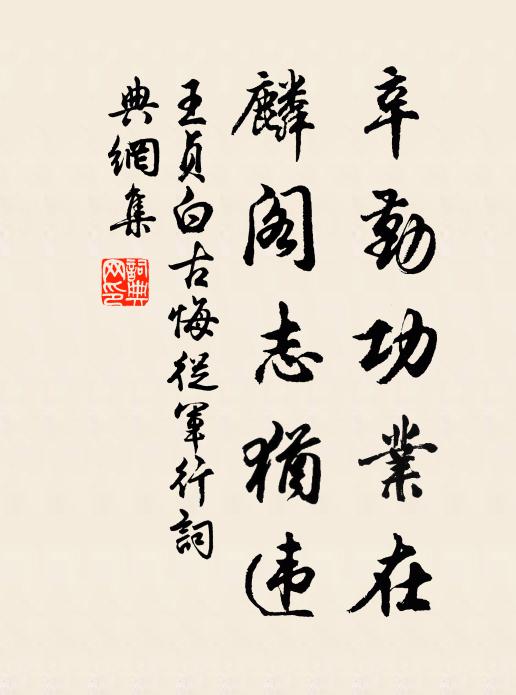 辛勤功業在
麟阁志猶违
王貞白古悔從軍行詞
典網集
詞典
网印